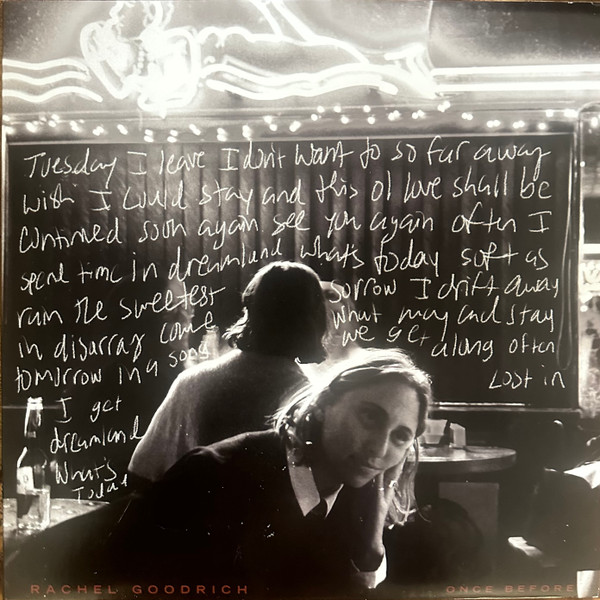 Tuesday I leave I don't want to so far away
wish I could stay and this ol love shall be
continued soon again see you again often I
spend time in dreamland what's today soft as
rain the sweetest sorrow I drift away
in disarray come what may and stay
tomorrow in a song we get along often
Lost in
I get
dreamland
What's
Today
RACHEL GOODRICH
ONCE BEFORE